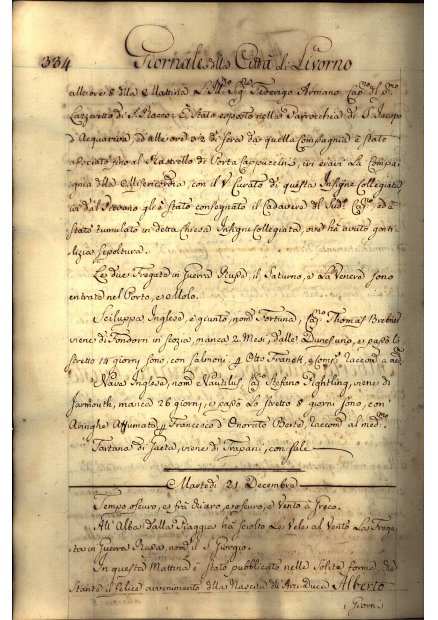 334 Giornale della Città di Livorno
alle ore 8 della Mattina Sigr Federigo Armano Capno del
Lazzeretto di S. Rocco: È Stato esposto nella Parrocchia di S. Jacopo
d'Acquaviva, ed alle ore 3 2 di sera da quella Compagnia è stato
associato fino al Rastrello di Porta Cappuccini, ivi eravi La Compa:
gnia della Misericordia, con il Curato di questa Insigne Collegiata
gli è stato consegnato il Cadavere del sudo Capno, ed è
stato tumulato in detta Chiesa Insigne Collegiata, ove ha avuto
sepoltura.
Le due Fregate in Guerra Russe il Saturno, e La Venera sono
entrate nel Porto, e Molo.
Sciluppa Inglese, è giunto, nomta Fortuna, Capno Thomas
viene di in Scozia, manca 2 Mesi, dalle Dune uno, e passò lo
stretto 14 giorni sono, con Salmoni, per Otto Franck, e Compi raccomdo a
Nave Inglese, nomta Nautilus, Capno Stefano Pightling, viene di
Jarmouth, manca 26 giorni, e passò Lo Stretto 8 giorni sono, con
Aringhe Affumate per Francesco d'Onorato Berte, raccomdo al medmo
Tartana di Gaeta, viene di Trapani, con sale
Martedì 21 Decembre
Tempo oscuro, e frà chiaro, e oscuro, e Vento à Greco.
All'Alba dalla Spiaggia ha sciolto Le Vele al Vento La Frega:
ta in Guerra Russa nomta il S. Giorgio.
In questa Mattina è stato pubblicato nelle Solite forme, che
Stante il felice avvenimento della Nascita dell'Arci-Duca Alberto
i Giorni